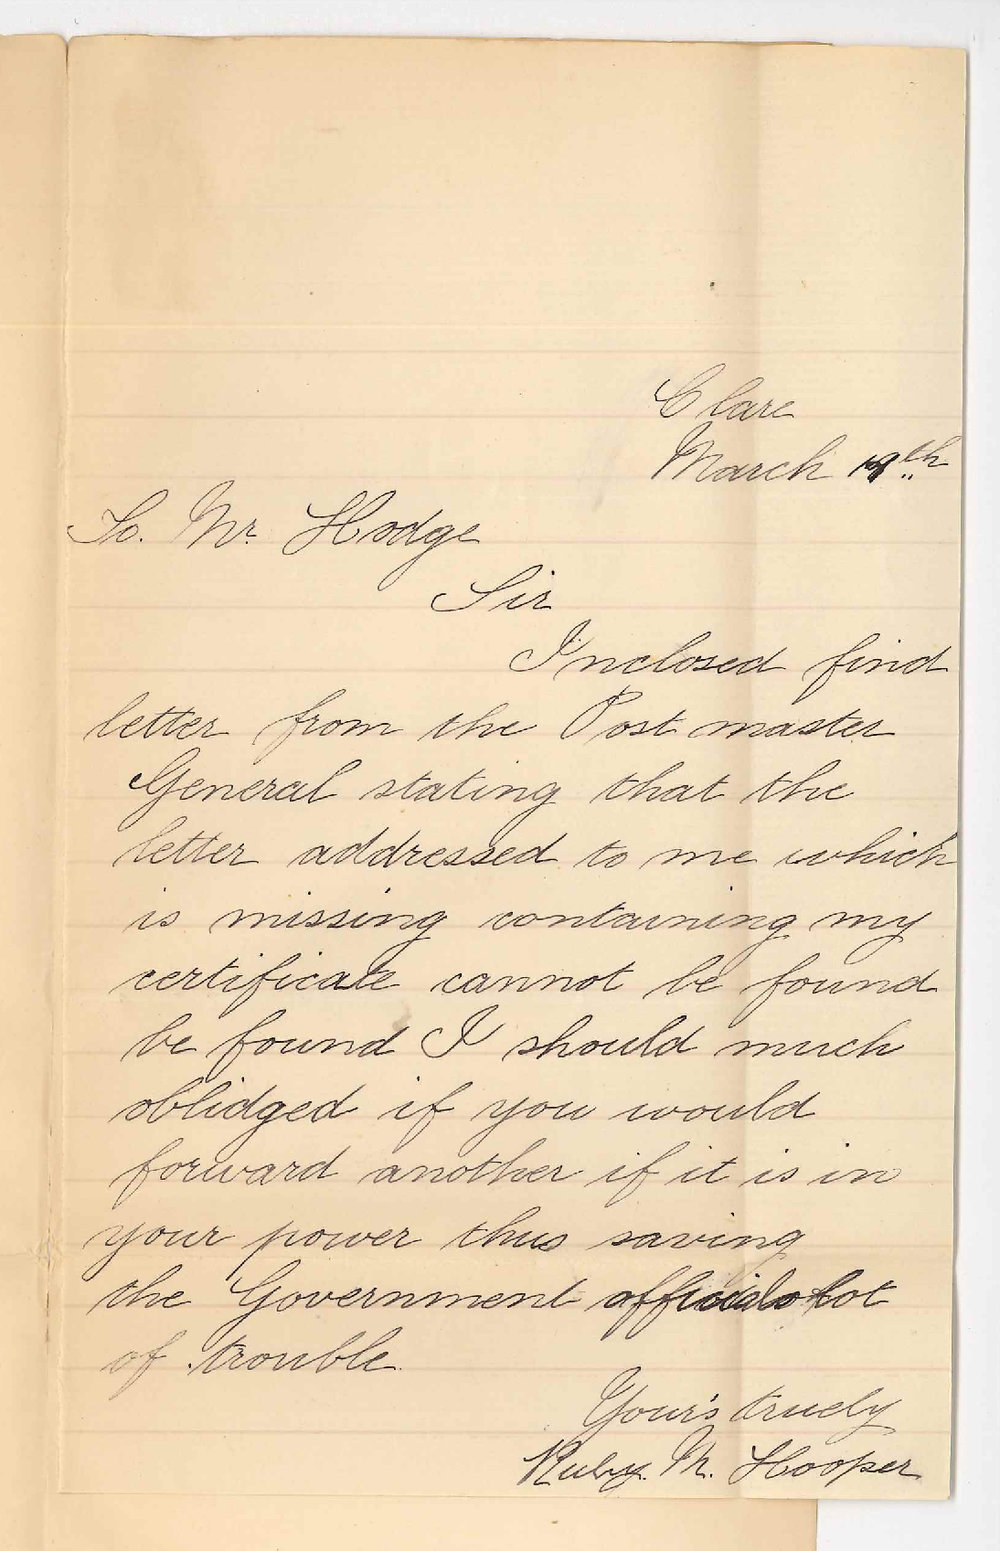 Clare
March 19th
To. Mr. Hodge
Sir
Inclosed find
letter from the Post master
General stating that the
letter addressed to me which
is missing containing my
certificate cannot be found
be found I should much
oblidged if you would
forward another if it is in
your power thus saving
the Government officials lot
of trouble.
Your's truely
Ruby. M. Hooper